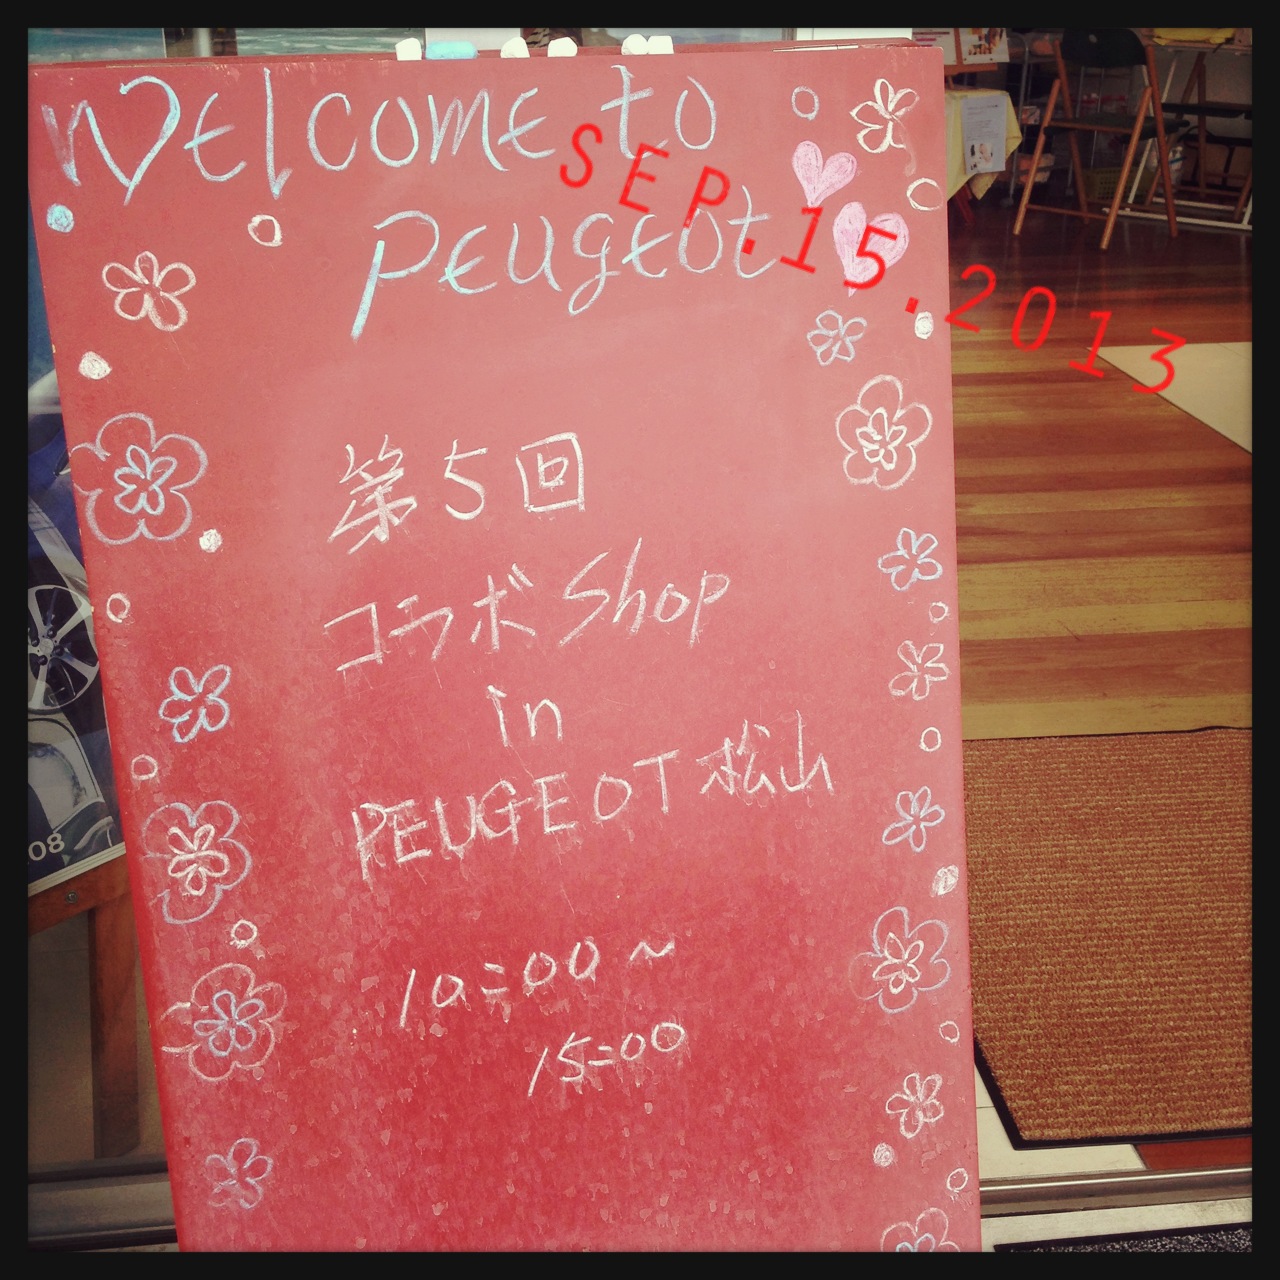 Welcome to
Peugeot
SEP.15.2013
第5回
コラボShop
in
PEUGEOT 松山
10:00~
15:00
08